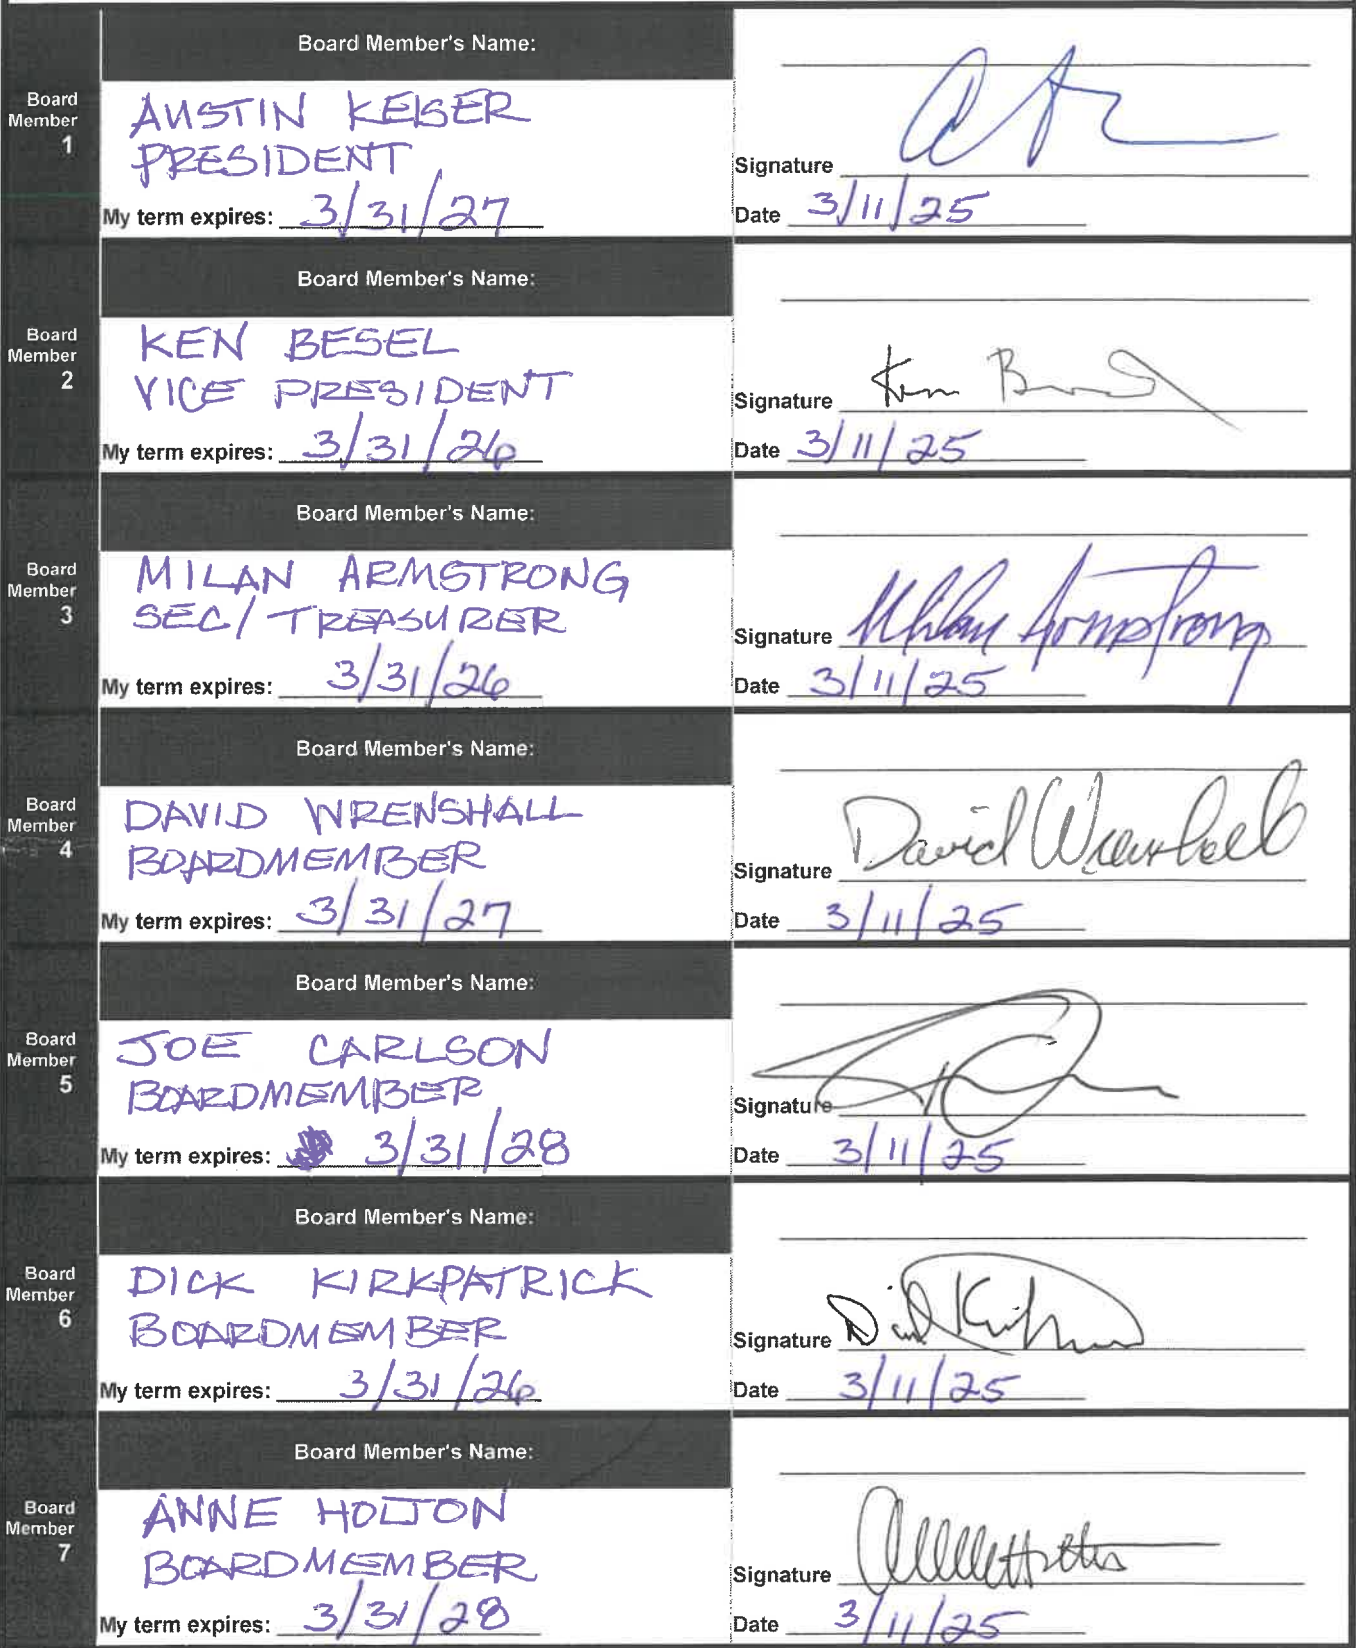 Board Member's Name:
Board
Member
1
AUSTIN KEISER
PRESIDENT
My term expires: 3/31/27
Signature
Date 3/11/25
Board Member's Name:
Board
Member
2
KEN BESEL
VICE PRESIDENT
My term expires: 3/31/26
Signature Ken B
Date 3/11/25
Board Member's Name:
Board
Member
3
MILAN ARMSTRONG
SEC/TREASURER
My term expires: 3/31/26
Signature Milan Armstrong
Date 3/11/25
Board Member's Name:
Board
Member
4
DAVID WRENSHALL
BOARDMEMBER
My term expires: 3/31/27
Signature David Wrenshall
Date 3/11/25
Board Member's Name:
Board
Member
5
JOE CARLSON
BOARDMEMBER
My term expires: 3/31/28
Signature
Date 3/11/25
Board Member's Name:
Board
Member
6
DICK KIRKPATRICK
BOARDMEMBER
My term expires: 3/31/26
Signature
Date 3/11/25
Board Member's Name:
Board
Member
7
ANNE HOLTON
BOARDMEMBER
My term expires: 3/31/28
Signature
Date 3/11/25